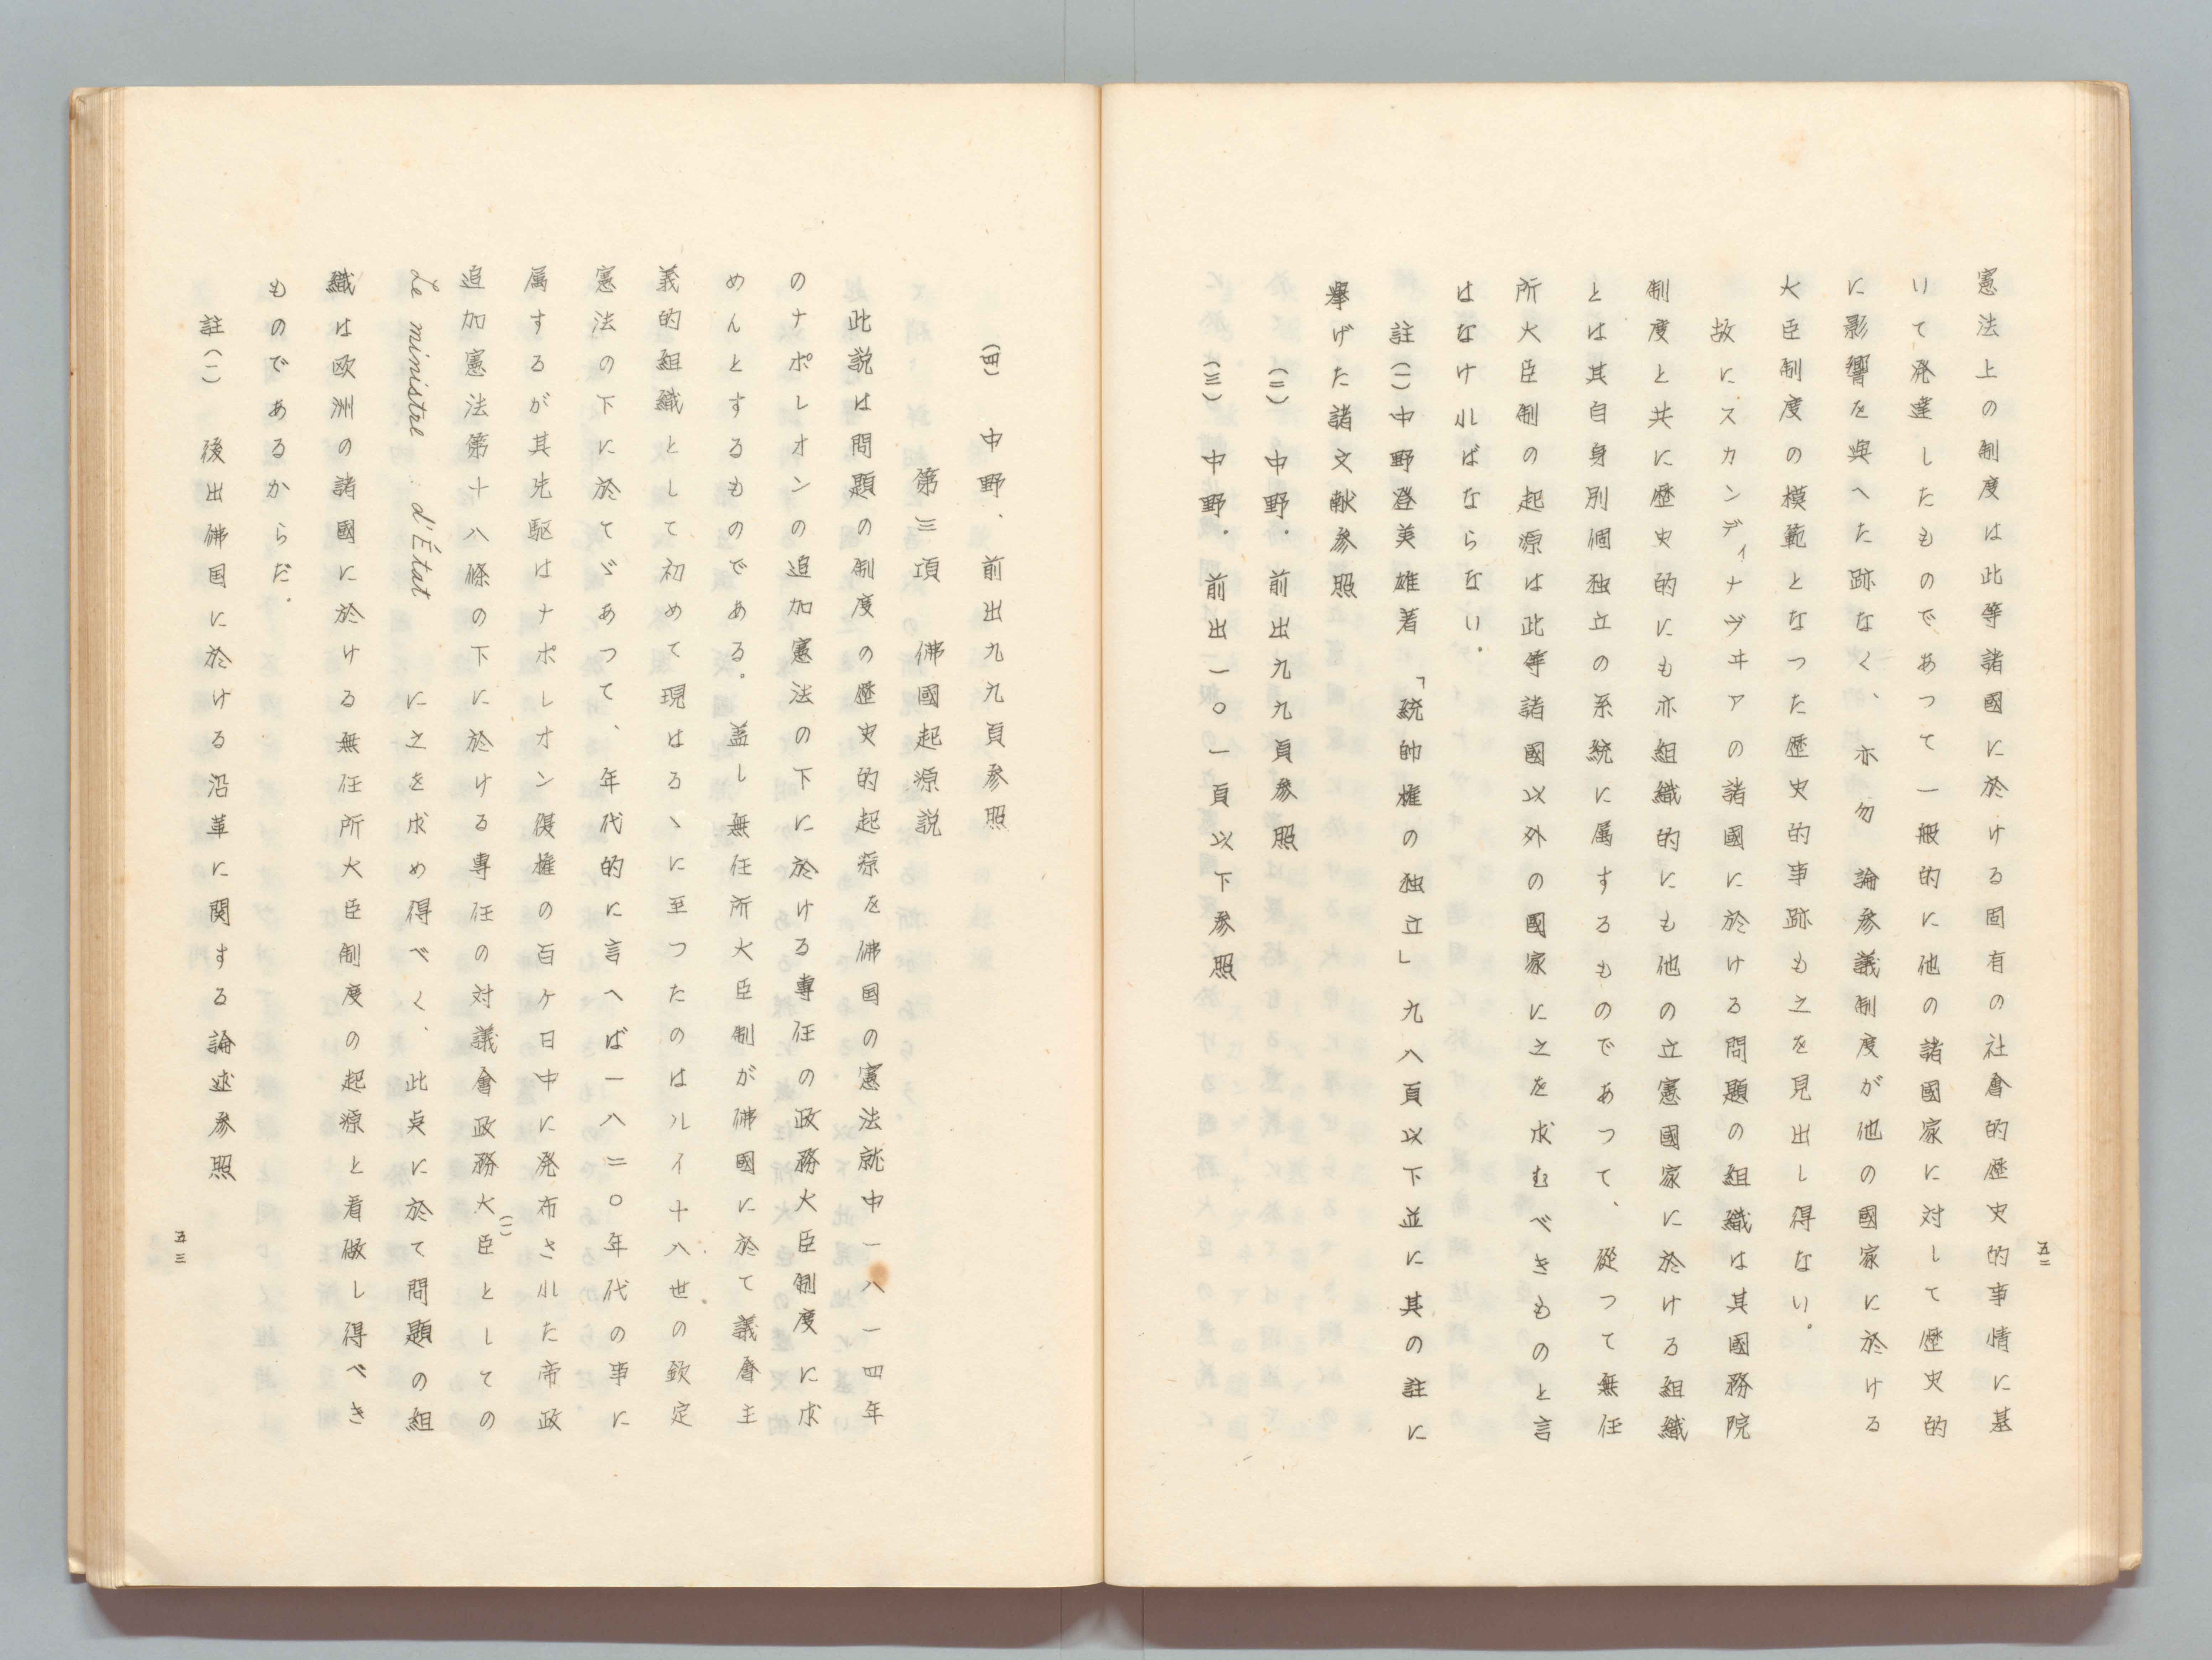 五二
憲法上の制度は此等諸國に於ける固有の社會的歴史的事情に基
いて発達したものであつて一般的に他の諸國家に対して歴史的
に影響を與へた跡なく、亦勿論参議制度が他の國家に於ける
大臣制度の模範となつた歴史的事跡も之を見出し得ない。
故にスカンディナヴヰアの諸國に於ける問題の組織は其國務院
制度と共に歴史的にも亦組織的にも他の立憲國家に於ける組織
とは其自身別個独立の系統に属するものであつて、從つて無任
所大臣制の起源は此等諸國以外の國家に之を求むべきものと言
はなければならない.
註(一)中野登美雄著「統帥権の独立」九八頁以下並に其の註に
擧げた諸文献参照
(二)中野.前出九九頁参照
(三)中野.前出一〇一頁以下参照
(四)中野、前出九九頁参照
第三項 佛國起源説
此説は問題の制度の歴史的起原を佛国の憲法就中一八一四年
のナポレオンの追加憲法の下に於ける專任の政務大臣制度に求
めんとするものである。蓋し無任所大臣制が佛國に於て議會主
義的組織として初めて現はるゝに至つたのはルイ十八世の欽定
憲法の下に於てゞあつて、年代的に言へば一八二〇年代の事に
属するが其先駆はナポレオン復権の百ケ日中に発布された帝政
追加憲法第十八條の下に於ける專任の対議會政務大臣としての(一)
Le ministre d'État に之を求め得べく、此点に於て問題の組
織は欧洲の諸國に於ける無任所大臣制度の起源と看做し得べき
ものであるからだ.
註(一) 後出佛国に於ける沿革に関する論述参照
五三